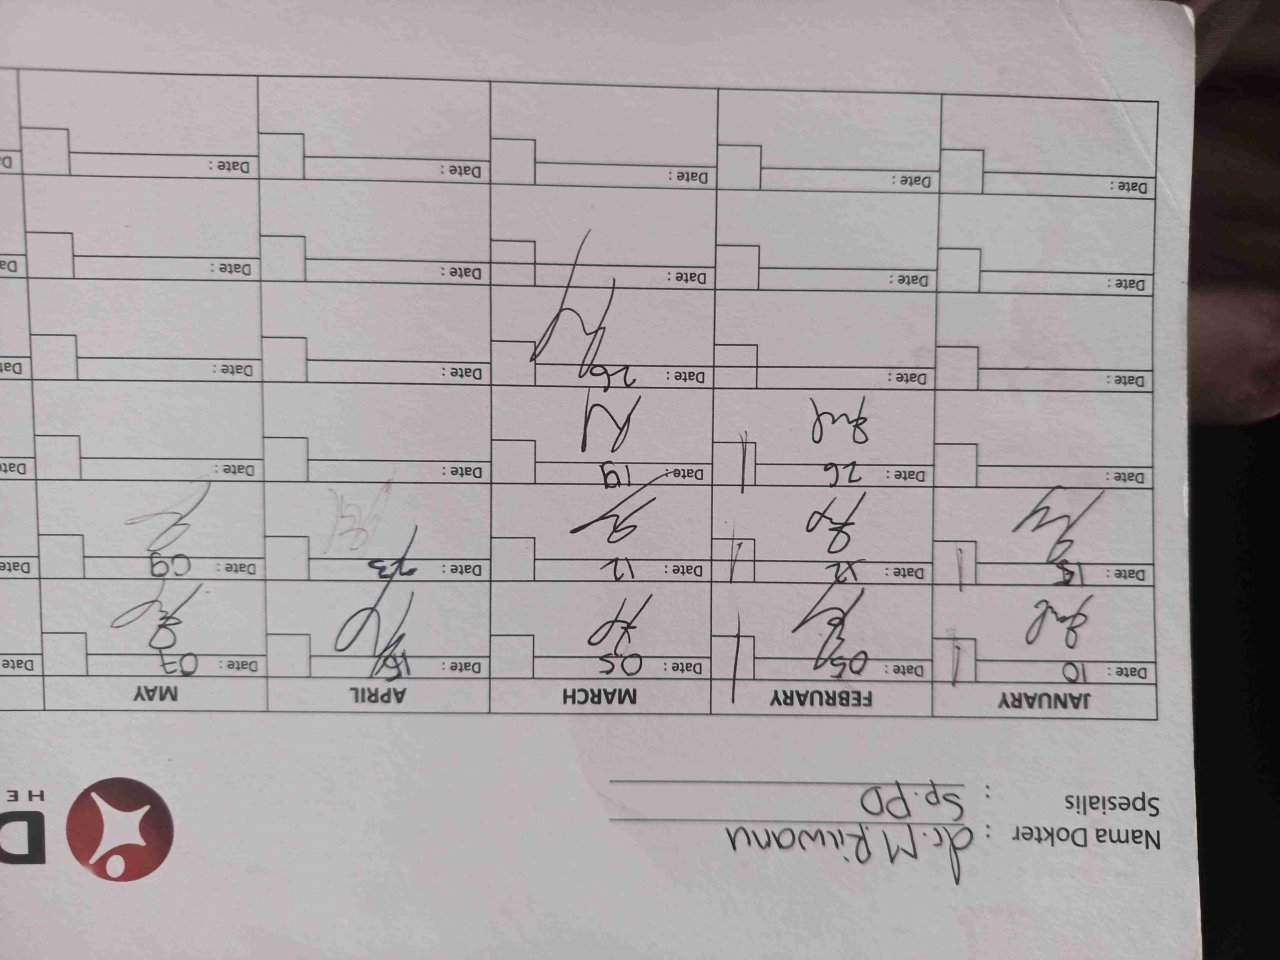 Nama Dokter : dr. M. Riwanu
Spesialis : Sp.PD
D
HE
JANUARY FEBRUARY MARCH APRIL MAY
Date : 10 Date : 05 Date : 05 Date : Date : 07 Date
Date : Date : 12 Date : 12 Date : 23 Date : 09 Date
Date : Date : 26 Date : 19 Date : Date : Date
Date : Date : Date : 26 Date : Date : Dat
Date : Date : Date : Date : Date : Da
Date : Date : Date : Date : Date : D